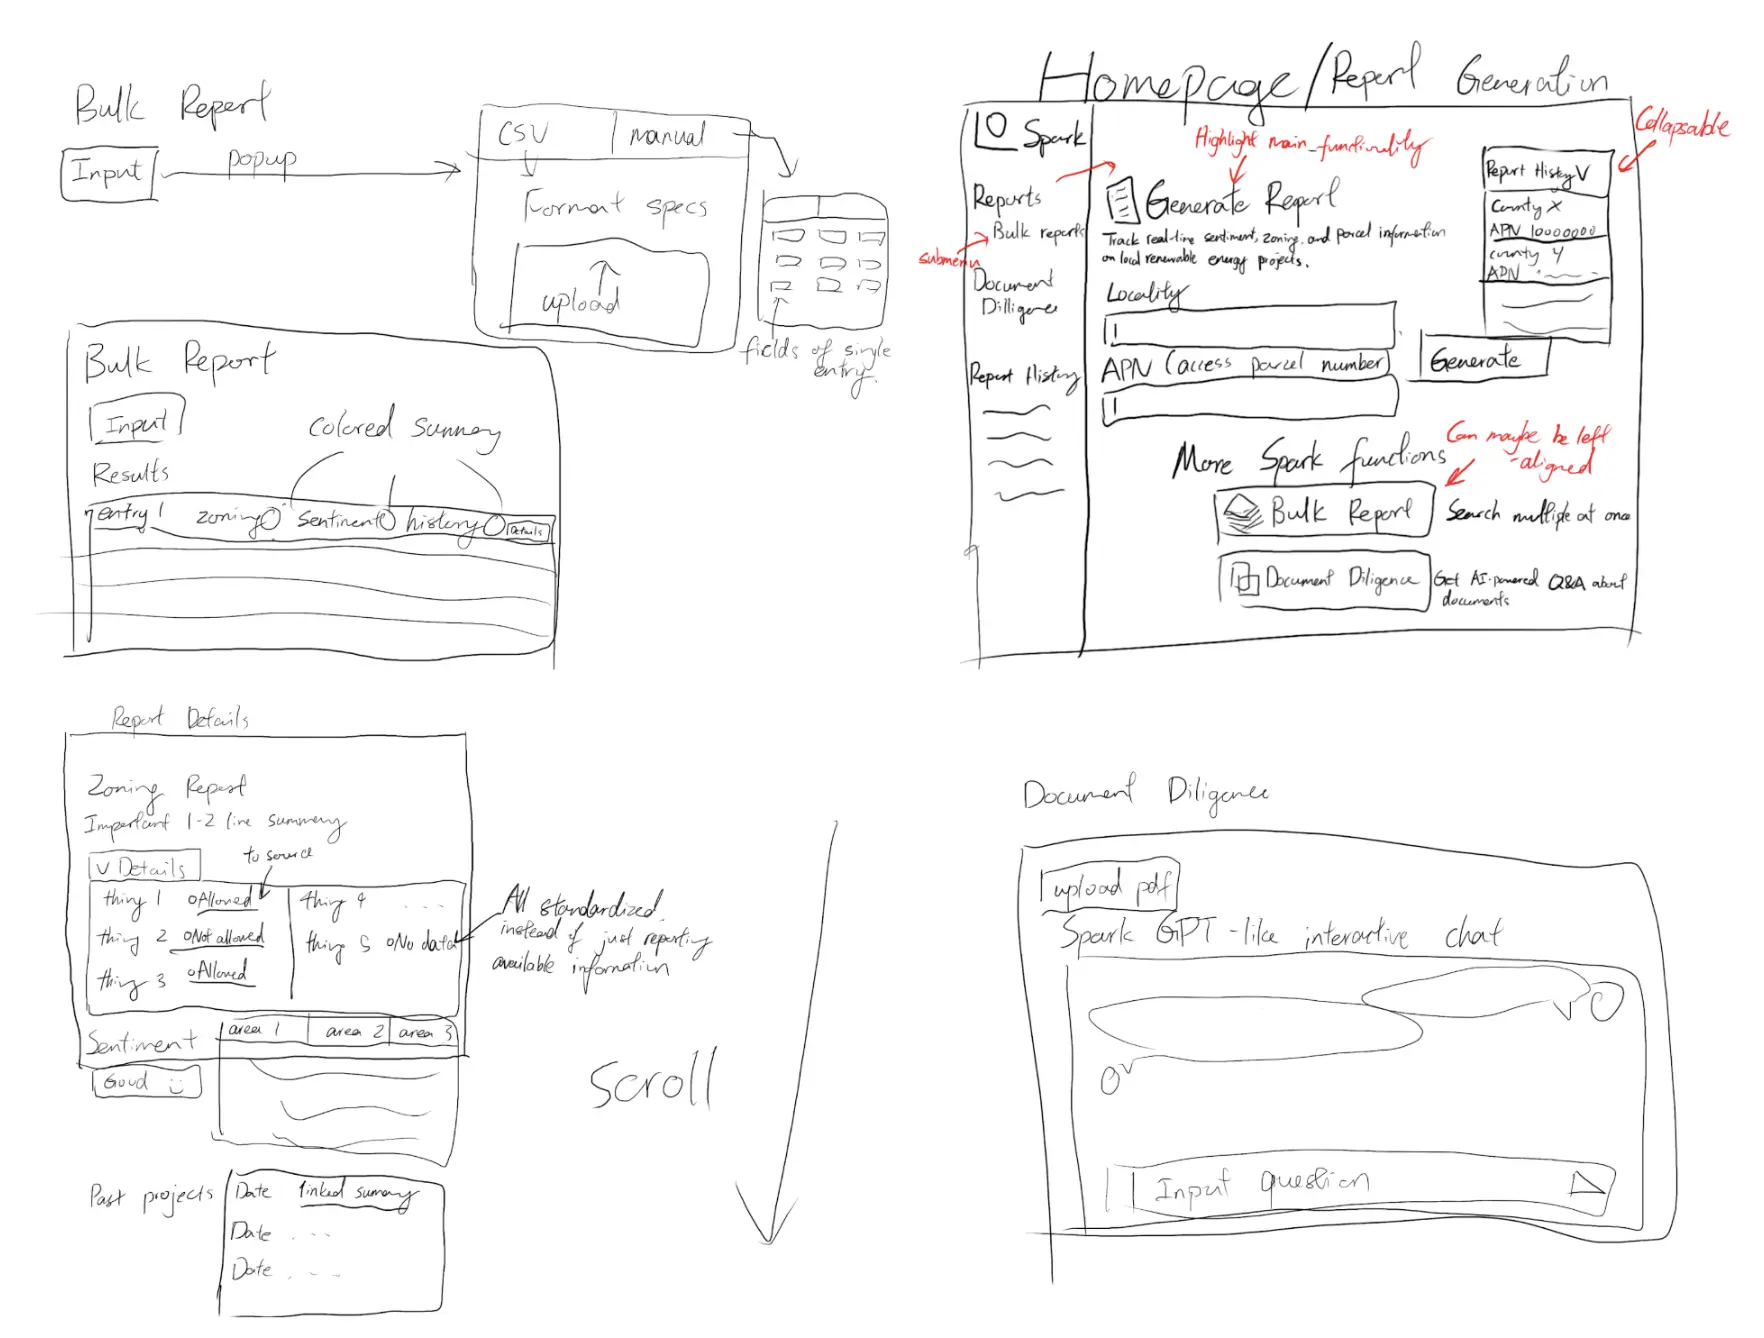 Bulk Report
Input
popup
CSV
manual
Format specs
upload
fields of single
entry.
Bulk Report
Input
colored summary
Results
entry 1 zoning sentiment history Details
Homepage/Report Generation
Spark
Reports
Bulk reports
submenu
Document
Dilligence
Report History
Highlight main functionality
Generate Report
Track real-time sentiment, zoning, and parcel information
on local renewable energy projects.
Locality
APN (access parcel number)
Generate
Collapsable
Report History V
County X
APN 10000000
County Y
APN
More Spark functions
Can maybe be left
-aligned
Bulk Report
Search multiple at once
Document Diligence
Get AI-powered Q&A about
documents
Report Details
Zoning Report
Important 1-2 line summary
V Details
to source
thing 1 Allowed
thing 2 Not allowed
thing 3 Allowed
thing 4 ...
thing 5 No data
All standardized
instead of just reporting
available information
Sentiment
Good
area 1 area 2 area 3
Past projects
Date linked summary
Date ...
Date ...
Scroll
Document Diligence
upload pdf
Spark GPT-like interactive chat
Input question